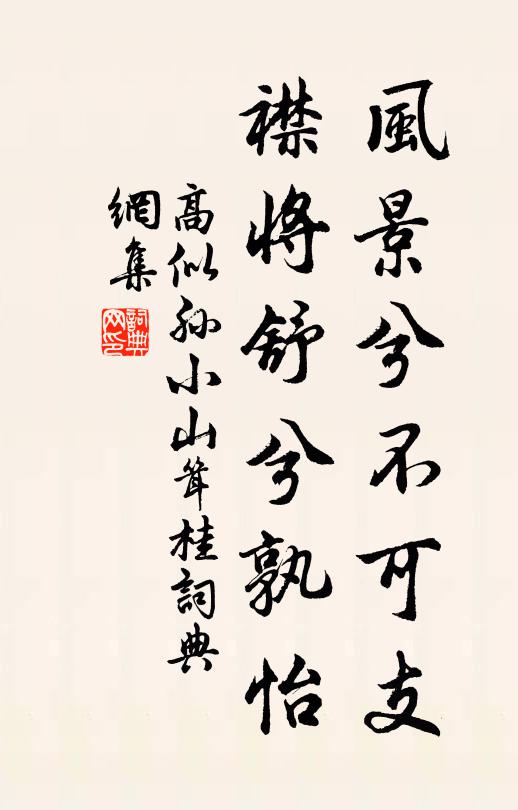 風景兮不可支
襟將舒兮孰怡
高似孫小山聳桂詞典
網集
詞典
网印